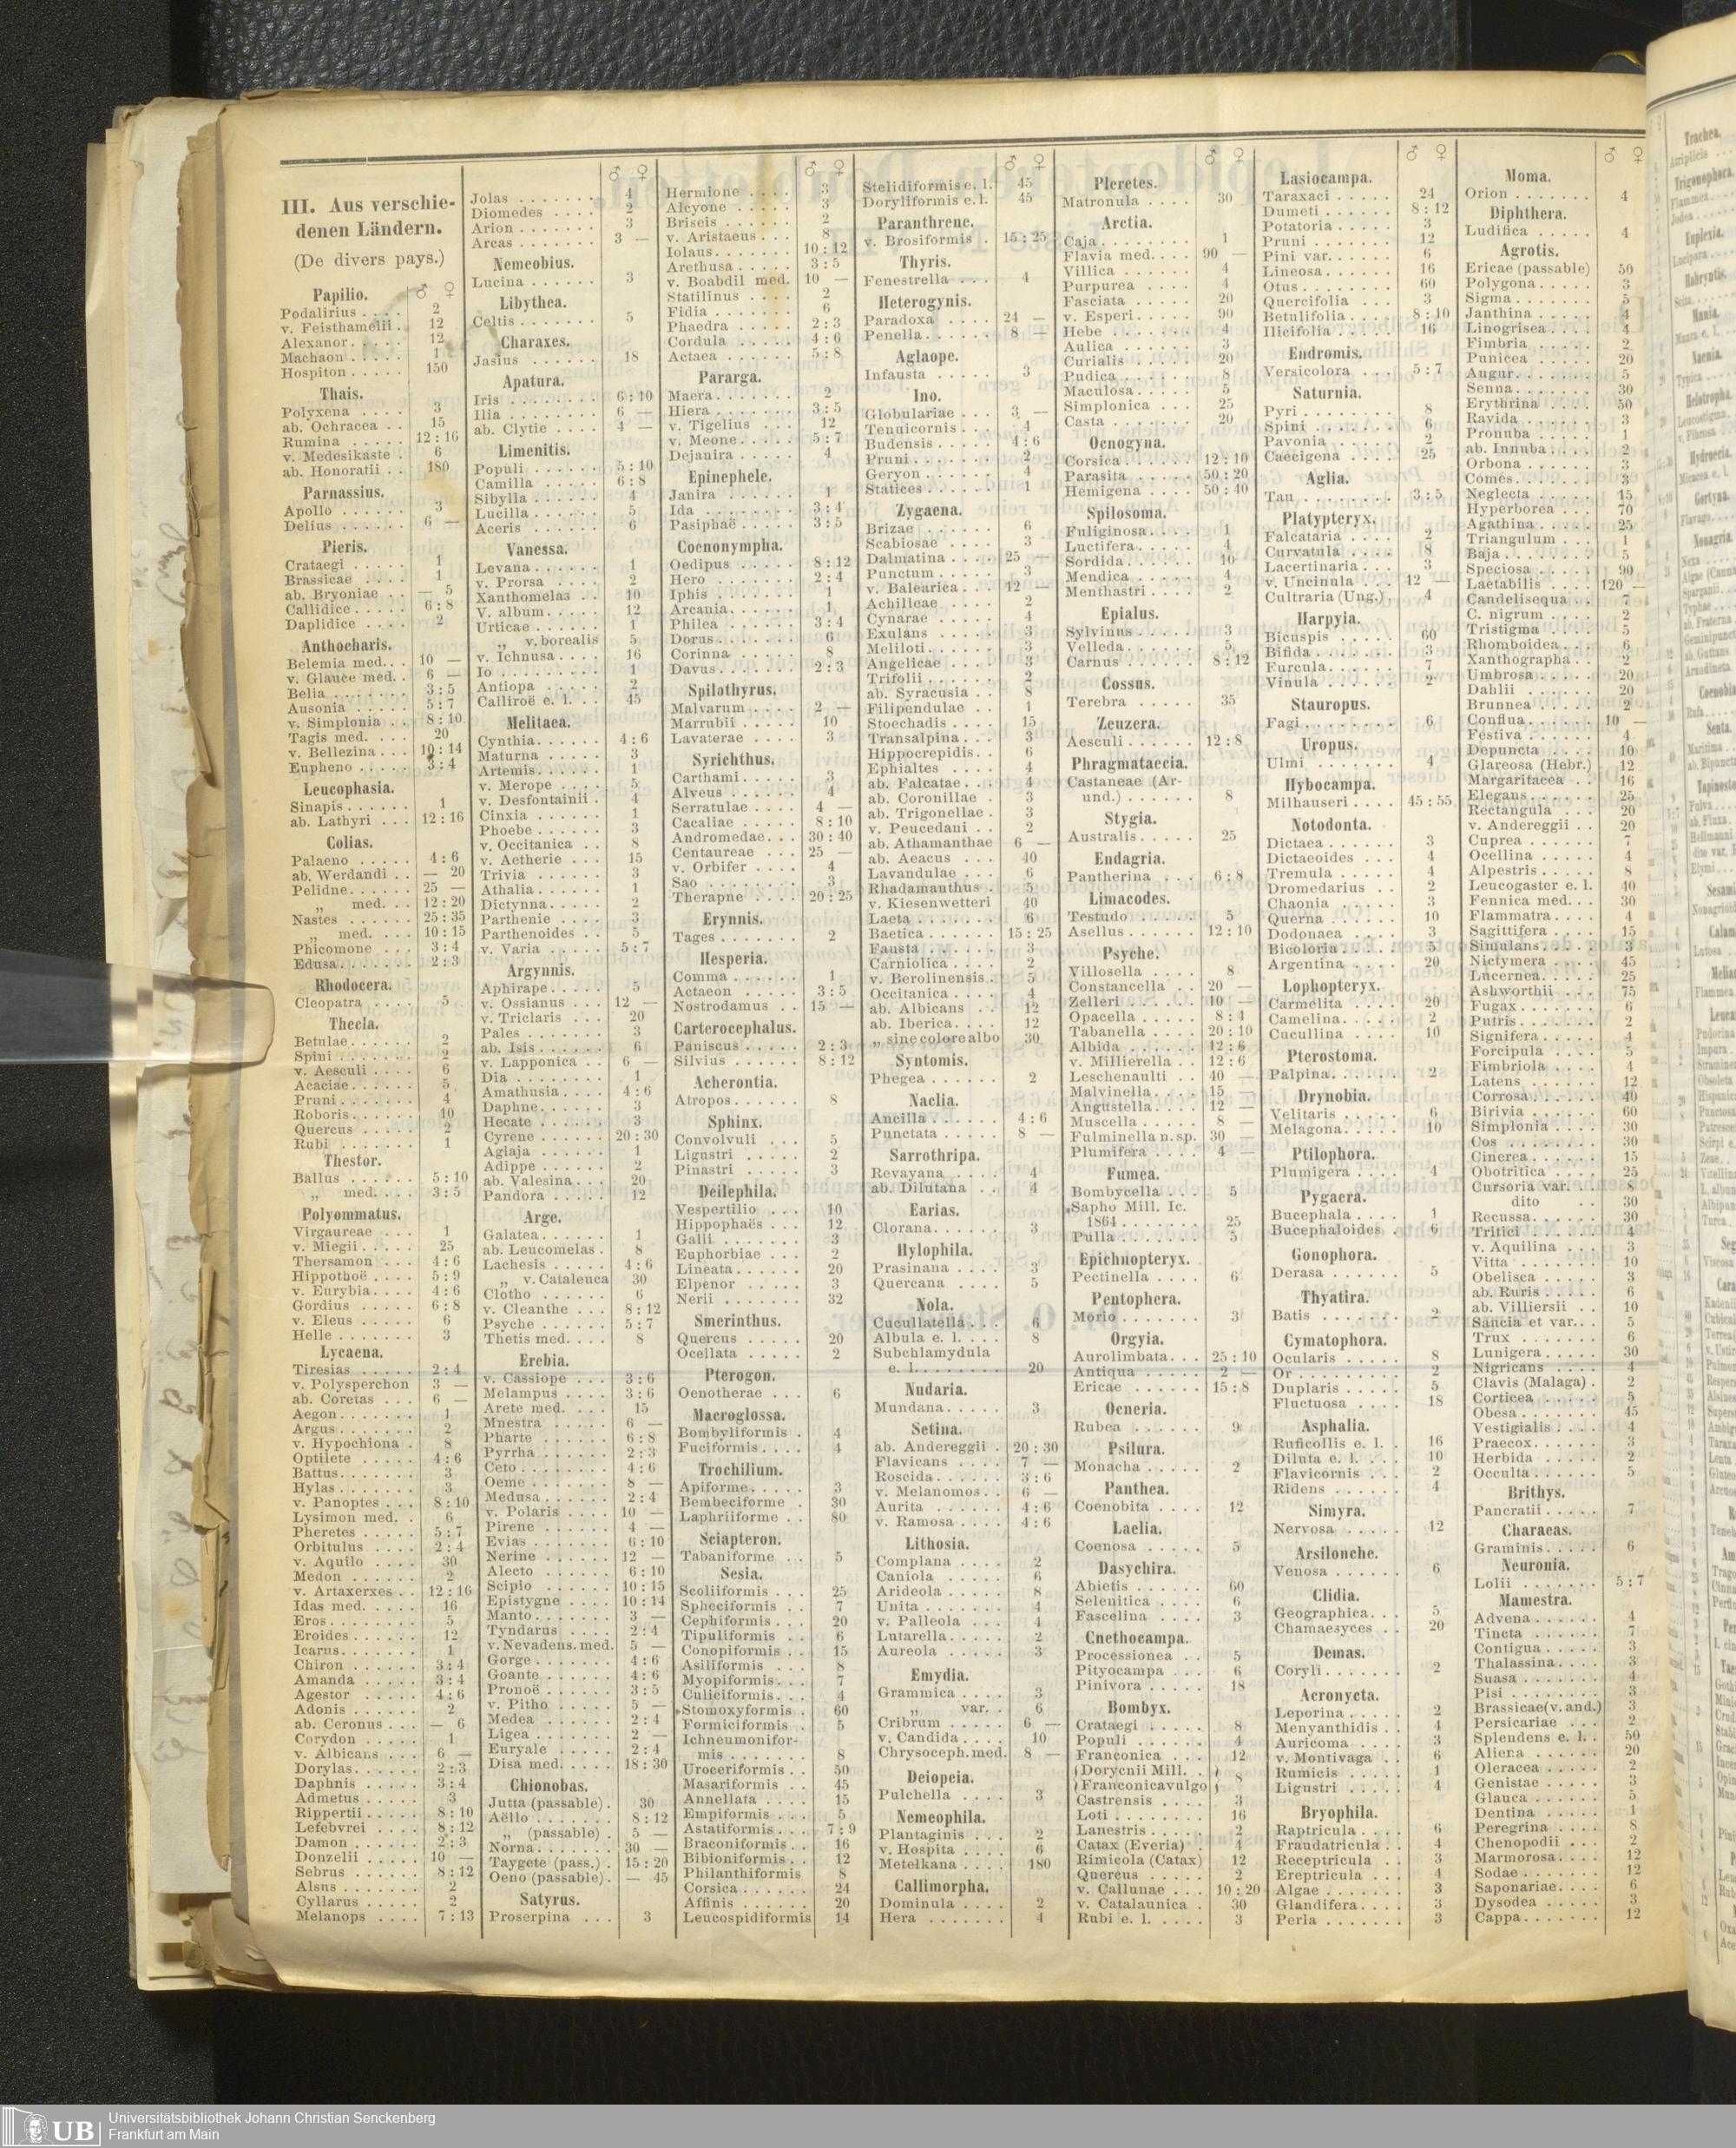 III. Aus verschie-
denen Ländern.
(De divers pays.)
Papilio. ♂ ♀
Podalirius . . . . 2
v. Feisthamelii . 12
Alexanor. . . . . 12
Machaon . . . . . 1
Hospiton . . . . . 150
Thais.
Polyxena . . . . 3
ab. Ochracea . . 15
Rumina . . . . . 12 : 16
v. Medesikaste . 6
ab. Honoratii . . 180
Parnassius.
Apollo . . . . . . 3
Delius . . . . . . 6 —
Pieris.
Crataegi . . . . . 1
Brassicae . . . . 1
ab. Bryoniae . . — 5
Callidice . . . . . 6 : 8
Daplidice . . . . 2
Anthocharis.
Belemia med. . . 10 —
v. Glauce med. . 6 —
Belia . . . . . . . 3 : 5
Ausonia . . . . . 5 : 7
v. Simplonia . . 8 : 10
Tagis med. . . . 20
v. Bellezina . . . 10 : 14
Eupheno . . . . . 3 : 4
Leucophasia.
Sinapis . . . . . . 1
ab. Lathyri . . . 12 : 16
Colias.
Palaeno . . . . . 4 : 6
ab. Werdandi . . — 20
Pelidne . . . . . . 25 —
„ med. . . 12 : 20
Nastes . . . . . . 25 : 35
„ med. . . . 10 : 15
Phicomone . . . 3 : 4
Edusa. . . . . . . 2 : 3
Rhodocera.
Cleopatra . . . . 5
Thecla.
Betulae . . . . . . 2
Spini . . . . . . . 2
v. Aesculi . . . . 6
Acaciae . . . . . . 5
Pruni . . . . . . . 4
Roboris. . . . . . 10
Quercus . . . . . 2
Rubi . . . . . . . 1
Thestor.
Ballus . . . . . . 5 : 10
„ med. . . . 3 : 5
Polyommatus.
Virgaureae . . . 1
v. Miegii . . . . . 25
Thersamon . . . 4 : 6
Hippothoë . . . . 5 : 9
v. Eurybia . . . . 4 : 6
Gordius . . . . . 6 : 8
v. Eleus . . . . . 6
Helle . . . . . . . 3
Lycaena.
Tiresias . . . . . 2 : 4
v. Polysperchon 3 —
ab. Coretas . . . 6 —
Aegon . . . . . . . 1
Argus . . . . . . . 2
v. Hypochiona . 8
Optilete . . . . . 4 : 6
Battus . . . . . . . 3
Hylas . . . . . . . 3
v. Panoptes . . . 8 : 10
Lysimon med. . 6
Pheretes . . . . . 5 : 7
Orbitulus . . . . 2 : 4
v. Aquilo . . . . 30
Medon . . . . . . 2
v. Artaxerxes . . 12 : 16
Idas med. . . . . 16
Eros . . . . . . . . 5
Eroides . . . . . . 12
Icarus . . . . . . . 1
Chiron . . . . . . 3 : 4
Amanda . . . . . 3 : 4
Agestor . . . . . 4 : 6
Adonis . . . . . . 2
ab. Ceronus . . . — 6
Corydon . . . . . 1
v. Albicans . . . 6 —
Dorylas . . . . . . 2 : 3
Daphnis . . . . . 3 : 4
Admetus . . . . . 3
Rippertii . . . . . 8 : 10
Lefebvrei . . . . 8 : 12
Damon . . . . . . 2 : 3
Donzelii . . . . . 10 —
Sebrus . . . . . . 8 : 12
Alsus . . . . . . . 2
Cyllarus . . . . . 2
Melanops . . . . 7 : 13
♂ ♀
Jolas . . . . . . . 4
Diomedes . . . . 2
Arion . . . . . . . 3
Arcas . . . . . . . 3 —
Nemeobius.
Lucina . . . . . . 3
Libythea.
Celtis . . . . . . . 5
Charaxes.
Jasius . . . . . . 18
Apatura.
Iris . . . . . . . . 6 : 10
Ilia . . . . . . . . 6 —
ab. Clytie . . . . 4 —
Limenitis.
Populi . . . . . . 5 : 10
Camilla . . . . . 6 : 8
Sibylla . . . . . . 4
Lucilla . . . . . . 5
Aceris . . . . . . 6
Vanessa.
Levana . . . . . . 1
v. Prorsa . . . . 2
Xanthomelas . . 10
V. album . . . . . 12
Urticae . . . . . . 1
„ v. borealis 5
v. Ichnusa . . . . 16
Io . . . . . . . . . 1
Antiopa . . . . . 2
Calliroë e. l. . . 45
Melitaea.
Cynthia. . . . . . 4 : 6
Maturna . . . . . 3
Artemis. . . . . . 1
v. Merope . . . . 5
v. Desfontainii . 4
Cinxia . . . . . . 1
Phoebe . . . . . . 3
v. Occitanica . . 8
v. Aetherie . . . 15
Trivia . . . . . . 3
Athalia . . . . . . 1
Dictynna . . . . . 2
Parthenie . . . . 3
Parthenoides . . 5
v. Varia . . . . . 5 : 7
Argynnis.
Aphirape . . . . . 5
v. Ossianus . . . 12 —
v. Triclaris . . . 20
Pales . . . . . . . 3
ab. Isis . . . . . . 6
v. Lapponica . . 6 —
Dia . . . . . . . . 1
Amathusia . . . . 4 : 6
Daphne . . . . . . 3
Hecate . . . . . . 3
Cyrene . . . . . . 20 : 30
Aglaja . . . . . . 1
Adippe . . . . . . 2
ab. Valesina . . . 20
Pandora . . . . . 12
Arge.
Galatea . . . . . . 1
ab. Leucomelas . 8
Lachesis . . . . . 4 : 6
„ v. Cataleuca 30
Clotho . . . . . . 6
v. Cleanthe . . . 8 : 12
Psyche . . . . . . 5 : 7
Thetis med. . . . 8
Erebia.
v. Cassiope . . . 3 : 6
Melampus . . . . 3 : 6
Arete med. . . . 15
Mnestra . . . . . 6 —
Pharte . . . . . . 6 : 8
Pyrrha . . . . . . 2 : 3
Ceto . . . . . . . . 4 : 6
Oeme . . . . . . . 8 —
Medusa . . . . . . 2 : 4
v. Polaris . . . . 10 —
Pirene . . . . . . 4 —
Evias . . . . . . . 6 : 10
Nerine . . . . . . 12 —
Alecto . . . . . . 6 : 10
Scipio . . . . . . 10 : 15
Epistygne . . . . 10 : 14
Manto . . . . . . . 3 —
Tyndarus . . . . 2 : 4
v. Nevadens. med. 5 —
Gorge . . . . . . . 4 : 6
Goante . . . . . . 4 : 6
Pronoë . . . . . . 3 : 5
v. Pitho . . . . . 5 —
Medea . . . . . . 2 : 4
Ligea . . . . . . . 2 —
Euryale . . . . . 2 : 4
Disa med. . . . . 18 : 30
Chionobas.
Jutta (passable) . 30
Aëllo . . . . . . . 8 : 12
„ (passable) . 5 —
Norna . . . . . . . 30 —
Taygete (pass.) . 15 : 20
Oeno (passable) . — 45
Satyrus.
Proserpina . . . 3
♂ ♀
Hermione . . . . 3
Alcyone . . . . . 3
Briseis . . . . . . 2
v. Aristaeus . . . 8
Iolaus . . . . . . . 10 : 12
Arethusa . . . . . 3 : 5
v. Boabdil med. 10 —
Statilinus . . . . 2
Fidia . . . . . . . 6
Phaedra . . . . . 2 : 3
Cordula . . . . . 4 : 6
Actaea . . . . . . 5 : 8
Pararga.
Maera . . . . . . . 2
Hiera . . . . . . . 3 : 5
v. Tigelius . . . 12
v. Meone . . . . . 5 : 7
Dejanira . . . . . 4
Epinephele.
Janira . . . . . . 1
Ida . . . . . . . . 3 : 4
Pasiphaë . . . . . 3 : 5
Coenonympha.
Oedipus . . . . . 8 : 12
Hero . . . . . . . 2 : 4
Iphis . . . . . . . 1
Arcania . . . . . . 1
Philea . . . . . . 3 : 4
Dorus . . . . . . . 6
Corinna . . . . . 8
Davus . . . . . . . 2 : 3
Spilothyrus.
Malvarum . . . . 2 —
Marrubii . . . . . 10
Lavaterae . . . . 3
Syrichthus.
Carthami . . . . . 3
Alveus . . . . . . 4
Serratulae . . . . 4 —
Cacaliae . . . . . 8 : 10
Andromedae . . . 30 : 40
Centaureae . . . 25 —
v. Orbifer . . . . 4
Sao . . . . . . . . 3
Therapne . . . . 20 : 25
Erynnis.
Tages . . . . . . . 2
Hesperia.
Comma . . . . . . 1
Actaeon . . . . . 3 : 5
Nostrodamus . . 15 —
Carterocephalus.
Paniscus . . . . . 2 : 3
Silvius . . . . . . 8 : 12
Acherontia.
Atropos . . . . . . 8
Sphinx.
Convolvuli . . . 5
Ligustri . . . . . 2
Pinastri . . . . . 3
Deilephila.
Vespertilio . . . 10
Hippophaës . . . 12
Galii . . . . . . . 3
Euphorbiae . . . 2
Lineata . . . . . . 20
Elpenor . . . . . 3
Nerii . . . . . . . 32
Smerinthus.
Quercus . . . . . 20
Ocellata . . . . . 2
Pterogon.
Oenotherae . . . 6
Macroglossa.
Bombyliformis . 4
Fuciformis . . . . 4
Trochilium.
Apiforme . . . . . 3
Bembeciforme . 30
Laphriiforme . . 80
Sciapteron.
Tabaniforme . . 5
Sesia.
Scoliiformis . . . 25
Spheciformis . . 7
Cephiformis . . . 20
Tipuliformis . . 6
Conopiformis . . 15
Asiliformis . . . 8
Myopiformis . . . 7
Culiciformis . . . 4
Stomoxyformis . 60
Formiciformis . 5
Ichneumonifor-
mis . . . . . . . 8
Uroceriformis . . 50
Masariformis . . 45
Annellata . . . . 15
Empiformis . . . 5
Astatiformis . . . 7 : 9
Braconiformis . . 16
Bibioniformis . . 12
Philanthiformis 8
Corsica . . . . . . 24
Affinis . . . . . . 20
Leucospidiformis 14
♂ ♀
Stelidiformis e. l. 45
Doryliformis e. l. 45
Paranthrene.
v. Brosiformis . 15 : 25
Thyris.
Fenestrella . . . 4
Heterogynis.
Paradoxa . . . . 24 —
Penella . . . . . . 8 —
Aglaope.
Infausta . . . . . 3
Ino.
Globulariae . . . 3 —
Tenuicornis . . . 4
Budensis . . . . . 4 : 6
Pruni . . . . . . . 2
Geryon . . . . . . 4
Statices . . . . . . 1
Zygaena.
Brizae . . . . . . 6
Scabiosae . . . . 3
Dalmatina . . . . 25 —
Punctum . . . . . 3
v. Balearica . . . 12 —
Achilleae . . . . 2
Cynarae . . . . . 4
Exulans . . . . . 3
Meliloti . . . . . . 3
Angelicae . . . . 3
Trifolii . . . . . . 2
ab. Syracusia . . 8
Filipendulae . . 1
Stoechadis . . . . 15
Transalpina . . . 3
Hippocrepidis . . 6
Ephialtes . . . . 4
ab. Falcatae . . . 4
ab. Coronillae . 3
ab. Trigonellae . 3
v. Peucedani . . 2
ab. Athamanthae 6 —
ab. Aeacus . . . 40
Lavandulae . . . 6
Rhadamanthus . 5
v. Kiesenwetteri 40
Laeta . . . . . . . 6
Baetica . . . . . . 15 : 25
Fausta . . . . . . 3
Carniolica . . . . 2
v. Berolinensis . 5
Occitanica . . . . 4
ab. Albicans . . 12
ab. Iberica . . . . 12
„ sine colore albo 30
Syntomis.
Phegea . . . . . . 2
Naclia.
Ancilla . . . . . . 4 : 6
Punctata . . . . . 8 —
Sarrothripa.
Revayana . . . . 4
ab. Dilutana . . 4
Earias.
Clorana . . . . . . 3
Hylophila.
Prasinana . . . . 3
Quercana . . . . 5
Nola.
Cucullatella . . . 6
Albula e. l. . . . 8
Subchlamydula
e. l. . . . . . . . 20
Nudaria.
Mundana . . . . . 3
Setina.
ab. Andereggii . 20 : 30
Flavicans . . . . 7 —
Roscida . . . . . . 3 : 6
v. Melanomos . . 6 —
Aurita . . . . . . 4 : 6
v. Ramosa . . . . 4 : 6
Lithosia.
Complana . . . . 2
Caniola . . . . . . 6
Arideola . . . . . 8
Unita . . . . . . . 4
v. Palleola . . . 4
Lutarella . . . . . 2
Aureola . . . . . 3
Emydia.
Grammica . . . . 3
„ var. . 6
Cribrum . . . . . 6 —
v. Candida . . . . 10
Chrysoceph. med. 8 —
Deiopeia.
Pulchella . . . . 3
Nemeophila.
Plantaginis . . . 2
v. Hospita . . . . 6
Metelkana . . . . 180
Callimorpha.
Dominula . . . . 2
Hera . . . . . . . 4
♂ ♀
Pleretes.
Matronula . . . . 30
Arctia.
Caja . . . . . . . . 1
Flavia med. . . . 90 —
Villica . . . . . . 4
Purpurea . . . . 4
Fasciata . . . . . 20
v. Esperi . . . . . 90
Hebe . . . . . . . 4
Aulica . . . . . . 3
Curialis . . . . . 20
Pudica . . . . . . 8
Maculosa . . . . . 5
Simplonica . . . 25
Casta . . . . . . . 20
Ocnogyna.
Corsica . . . . . . 12 : 10
Parasita . . . . . 50 : 20
Hemigena . . . . 50 : 40
Spilosoma.
Fuliginosa . . . . 1
Luctifera . . . . . 4
Sordida . . . . . . 10
Mendica . . . . . 4
Menthastri . . . . 2
Epialus.
Sylvinus . . . . . 3
Velleda . . . . . . 5
Carnus . . . . . . 8 : 12
Cossus.
Terebra . . . . . 35
Zeuzera.
Aesculi . . . . . . 12 : 8
Phragmataecia.
Castaneae (Ar-
und.) . . . . . . 8
Stygia.
Australis . . . . . 25
Endagria.
Pantherina . . . 6 : 8
Limacodes.
Testudo . . . . . 5
Asellus . . . . . . 12 : 10
Psyche.
Villosella . . . . 8
Constancella . . 20 —
Zelleri . . . . . . 10 —
Opacella . . . . . 8 : 4
Tabanella . . . . 20 : 10
Albida . . . . . . 12 : 6
v. Millierella . . 12 : 6
Leschenaulti . . 40 —
Malvinella . . . . 15 —
Angustella . . . . 12 —
Muscella . . . . . 8 —
Fulminella n. sp. 30 —
Plumifera . . . . 4 —
Fumea.
Bombycella . . . 5
Sapho Mill. Ic.
1864 . . . . . . 25
Pulla . . . . . . . 5
Epichnopteryx.
Pectinella . . . . 6
Pentophera.
Morio . . . . . . . 3
Orgyia.
Aurolimbata . . . 25 : 10
Antiqua . . . . . 2 —
Ericae . . . . . . 15 : 8
Ocneria.
Rubea . . . . . . 9
Psilura.
Monacha . . . . . 2
Panthea.
Coenobita . . . . 12
Laelia.
Coenosa . . . . . 5
Dasychira.
Abietis . . . . . . 60
Selenitica . . . . 6
Fascelina . . . . 3
Cnethocampa.
Processionea . . 5
Pityocampa . . . 6
Pinivora . . . . . 18
Bombyx.
Crataegi . . . . . 8
Populi . . . . . . 4
Franconica . . . 12
(Dorycnii Mill. . )
(Franconica vulgo) 8
Castrensis . . . . 3
Loti . . . . . . . . 16
Lanestris . . . . . 2
Catax (Everia) . 4
Rimicola (Catax) 12
Quercus . . . . . 2
v. Callunae . . . 10 : 20
v. Catalaunica . 30
Rubi e. l. . . . . 3
♂ ♀
Lasiocampa.
Taraxaci . . . . . 24
Dumeti . . . . . . 8 : 12
Potatoria . . . . 3
Pruni . . . . . . . 12
Pini var. . . . . . 6
Lineosa . . . . . . 16
Otus . . . . . . . . 60
Quercifolia . . . 3
Betulifolia . . . . 8 : 10
Ilicifolia . . . . . 16
Endromis.
Versicolora . . . 5 : 7
Saturnia.
Pyri . . . . . . . . 8
Spini . . . . . . . 6
Pavonia . . . . . 2
Caecigena . . . . 25
Aglia.
Tau . . . . . . . . 3 : 5
Platypteryx.
Falcataria . . . . 2
Curvatula . . . . 8
Lacertinaria . . . 3
v. Uncinula . . . 12 —
Cultraria (Ung.) . 4
Harpyia.
Bicuspis . . . . . 60
Bifida . . . . . . . 3
Furcula . . . . . . 7
Vinula . . . . . . 2
Stauropus.
Fagi . . . . . . . . 6
Uropus.
Ulmi . . . . . . . 4
Hybocampa.
Milhauseri . . . . 45 : 55
Notodonta.
Dictaea . . . . . . 3
Dictaeoides . . . 4
Tremula . . . . . 4
Dromedarius . . 2
Chaonia . . . . . 3
Querna . . . . . . 10
Dodonaea . . . . 3
Bicoloria . . . . . 5
Argentina . . . . 20
Lophopteryx.
Carmelita . . . . 20
Camelina . . . . . 2
Cucullina . . . . 10
Pterostoma.
Palpina . . . . . . 2
Drynobia.
Velitaris . . . . . 6
Melagona . . . . . 10
Ptilophora.
Plumigera . . . . 4
Pygaera.
Bucephala . . . . 1
Bucephaloides . 6
Gonophora.
Derasa . . . . . . 5
Thyatira.
Batis . . . . . . . 2
Cymatophora.
Ocularis . . . . . 8
Or . . . . . . . . . 2
Duplaris . . . . . 5
Fluctuosa . . . . 18
Asphalia.
Ruficollis e. l. . 16
Diluta e. l. . . . 10
Flavicornis . . . 2
Ridens . . . . . . 4
Simyra.
Nervosa . . . . . 12
Arsilonche.
Venosa . . . . . . 6
Clidia.
Geographica . . . 5
Chamaesyces . . 20
Demas.
Coryli . . . . . . . 2
Acronycta.
Leporina . . . . . 2
Menyanthidis . . 4
Auricoma . . . . 3
v. Montivaga . . 6
Rumicis . . . . . 1
Ligustri . . . . . 4
Bryophila.
Raptricula . . . . 6
Fraudatricula . . 4
Receptricula . . 3
Ereptricula . . . 4
Algae . . . . . . . 3
Glandifera . . . . 3
Perla . . . . . . . 3
♂ ♀
Moma.
Orion . . . . . . . 4
Diphthera.
Ludifica . . . . . 4
Agrotis.
Ericae (passable) 50
Polygona . . . . . 3
Sigma . . . . . . . 5
Janthina . . . . . 4
Linogrisea . . . . 4
Fimbria . . . . . 2
Punicea . . . . . 20
Augur . . . . . . . 5
Senna . . . . . . . 30
Erythrina . . . . 50
Ravida . . . . . . 3
Pronuba . . . . . 1
ab. Innuba . . . . 2
Orbona . . . . . . 3
Comes . . . . . . . 3
Neglecta . . . . . 15
Hyperborea . . . 70
Agathina . . . . . 25
Triangulum . . . 1
Baja . . . . . . . . 5
Speciosa . . . . . 90
Laetabilis . . . . 120 —
Candelisequa . . 7
C. nigrum . . . . 2
Tristigma . . . . 5
Rhomboidea . . . 6
Xanthographa . . 2
Umbrosa . . . . . 20
Dahlii . . . . . . 20
Brunnea . . . . . 2
Conflua . . . . . . 10 —
Festiva . . . . . . 4
Depuncta . . . . 10
Glareosa (Hebr.) 12
Margaritacea . . 16
Elegans . . . . . . 25
Rectangula . . . 20
v. Andereggii . . 20
Cuprea . . . . . . 7
Ocellina . . . . . 4
Alpestris . . . . . 8
Leucogaster e. l. 40
Fennica med. . . 30
Flammatra . . . . 4
Sagittifera . . . . 15
Simulans . . . . . 3
Nictymera . . . . 45
Lucernea . . . . . 25
Ashworthii . . . 75
Fugax . . . . . . . 6
Putris . . . . . . . 2
Signifera . . . . . 4
Forcipula . . . . 5
Fimbriola . . . . 4
Latens . . . . . . 12
Corrosa . . . . . . 40
Birivia . . . . . . 60
Simplonia . . . . 30
Cos . . . . . . . . 30
Cinerea . . . . . . 15
Obotritica . . . . 25
Cursoria var. . . 8
dito . . 30
Recussa . . . . . . 30
Tritici . . . . . . 4
v. Aquilina . . . 3
Vitta . . . . . . . 10
Obelisca . . . . . 3
ab. Ruris . . . . . 6
ab. Villiersii . . 10
Sancia et var. . . 5
Trux . . . . . . . 6
Lunigera . . . . . 30
Nigricans . . . . 4
Clavis (Malaga) . 2
Corticea . . . . . 5
Obesa . . . . . . . 45
Vestigialis . . . . 4
Praecox . . . . . . 3
Herbida . . . . . 2
Occulta . . . . . . 5
Brithys.
Pancratii . . . . . 7
Characas.
Graminis . . . . . 6
Neuronia.
Lolii . . . . . . . 5 : 7
Mamestra.
Advena . . . . . . 4
Tincta . . . . . . 7
Contigua . . . . . 3
Thalassina . . . . 3
Suasa . . . . . . . 4
Pisi . . . . . . . . 3
Brassicae (v. and.) 3
Persicariae . . . 2
Splendens e. l. . 50
Aliena . . . . . . 20
Oleracea . . . . . 2
Genistae . . . . . 3
Glauca . . . . . . 5
Dentina . . . . . 1
Peregrina . . . . 8
Chenopodii . . . 2
Marmorosa . . . . 12
Sodae . . . . . . . 12
Saponariae . . . . 6
Dysodea . . . . . 3
Cappa . . . . . . . 12
Trachea.
Atriplicis
Trigonophora.
Flammea
Jodea
Euplexia.
Lucipara
Habryntis.
Scita
Mania.
Maura e. l.
Naenia.
Typica
Helotropha.
Leucostigma
v. Fibrosa
Hydroecia.
Gortyna.
Flavago
Nonagria.
Senta.
Maritima
Tapinostola.
Fulva
Hellmanni
Elymi
UB
Universitätsbibliothek Johann Christian Senckenberg
Frankfurt am Main